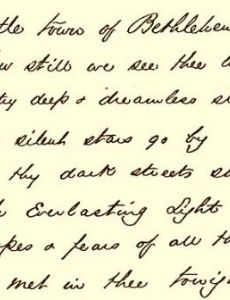 tle town of Bethlehem
w still we see thee
thy deep & dreamless
silent stars go by
thy dark streets
Everlasting Light
pes & fears of all th
met in thee tonig